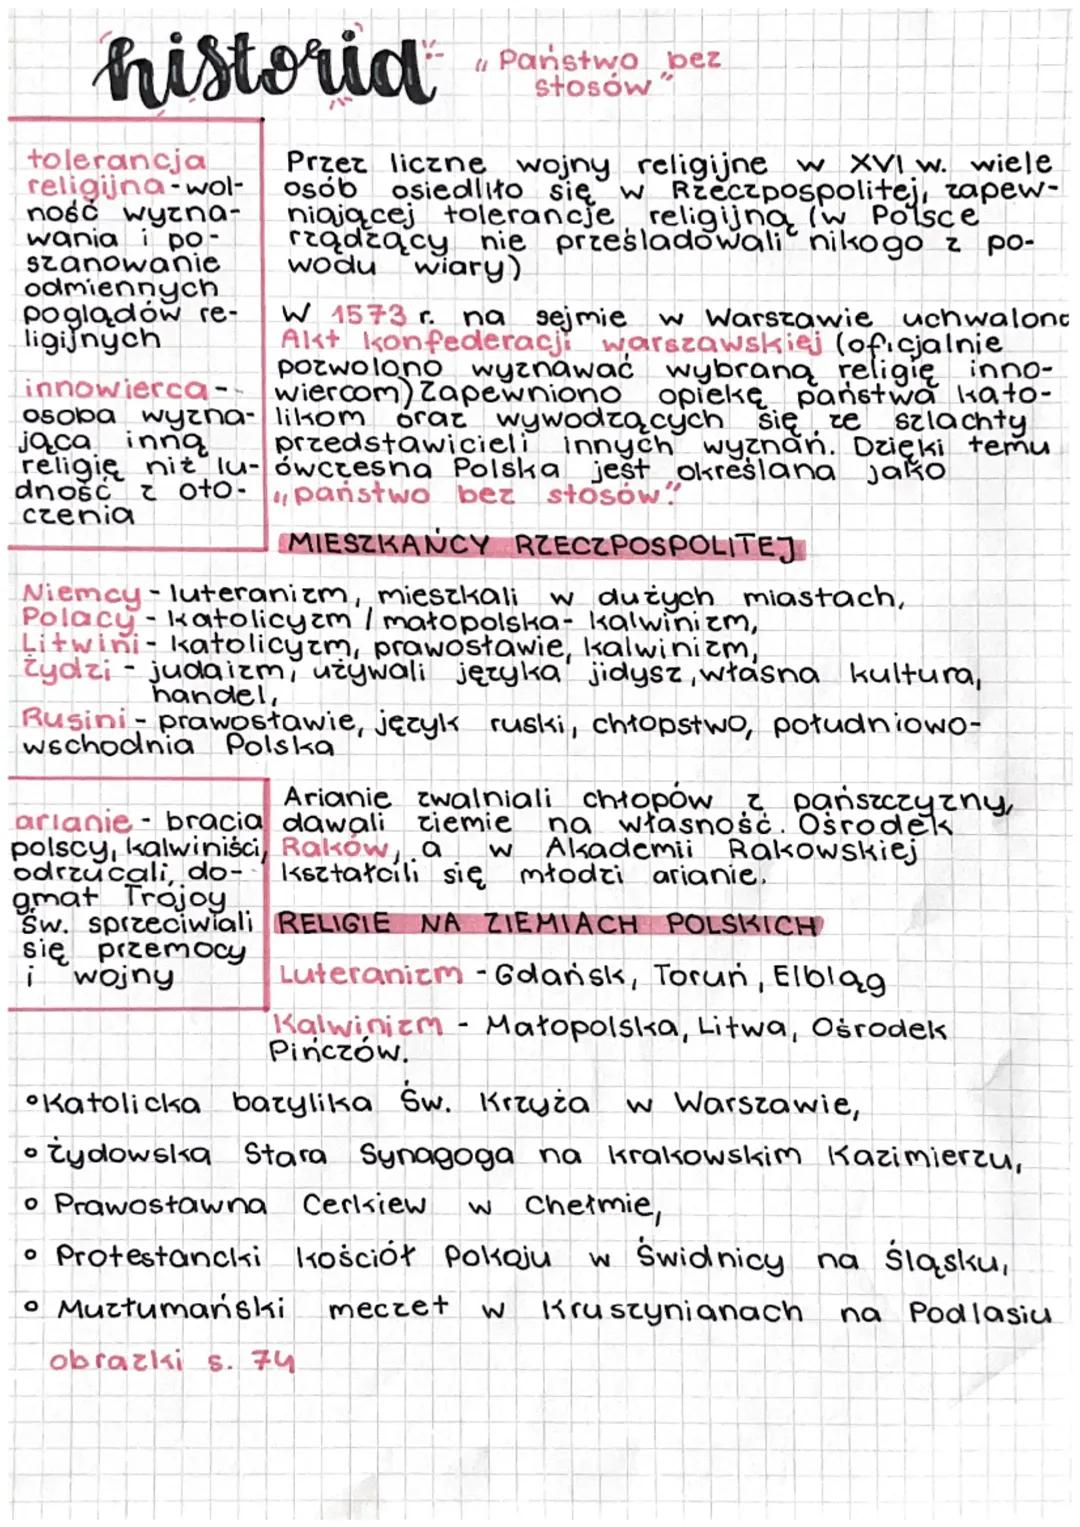 historia
„Państwo bez
stosów"
tolerancja
religijna - wol-
ność wyzna-
wania i po-
szanowanie
odmiennych
poglądów re-
ligijnych
innowierca -
osoba wyzna-
jąca inną
religię niż lu-
dność z oto-
czenia
Przez liczne wojny religijne w XVI w. wiele
osób osiedliło się w Rzeczpospolitej, zapew-
niającej tolerancje religijną (w Polsce
rządzący nie prześladowali nikogo z po-
wodu wiary)
W 1573 r. na sejmie w Warszawie uchwalono
Akt konfederacji warszawskiej (oficjalnie
pozwolono wyznawać wybraną religię inno-
wiercom) Zapewniono opiekę państwa kato-
likom oraz wywodzących się ze szlachty
przedstawicieli innych wyznań. Dzięki temu
ówczesna Polska jest określana jako
„państwo bez stosów."
MIESZKAŃCY RZECZPOSPOLITEJ
Niemcy - luteranizm, mieszkali w dużych miastach,
Polacy - katolicyzm / małopolska - kalwinizm,
Litwini - katolicyzm, prawosławie, kalwinizm,
Żydzi - judaizm, używali języka jidysz, własna kultura,
handel,
Rusini - prawosławie, język ruski, chłopstwo, południowo-
wschodnia Polska
arianie - bracia
polscy, kalwiniści,
odrzucali do-
gmat Trójcy
Św. sprzeciwiali
się przemocy
i wojny
Arianie zwalniali chłopów z pańszczyzny,
dawali ziemie na własność. Ośrodek
Raków, a w Akademii Rakowskiej
kształcili się młodzi arianie.
RELIGIE NA ZIEMIACH POLSKICH
Luteranizm - Gdańsk, Toruń, Elbląg
Kalwinizm - Małopolska, Litwa, Ośrodek
Pińczów.
• Katolicka bazylika Św. Krzyża w Warszawie,
• Żydowska Stara Synagoga na krakowskim Kazimierzu,
• Prawosławna Cerkiew w Chełmie,
• Protestancki kościół Pokoju w Świdnicy na Śląsku,
• Muzłumański meczet w Kruszynianach na Podlasiu
obrazki s. 74